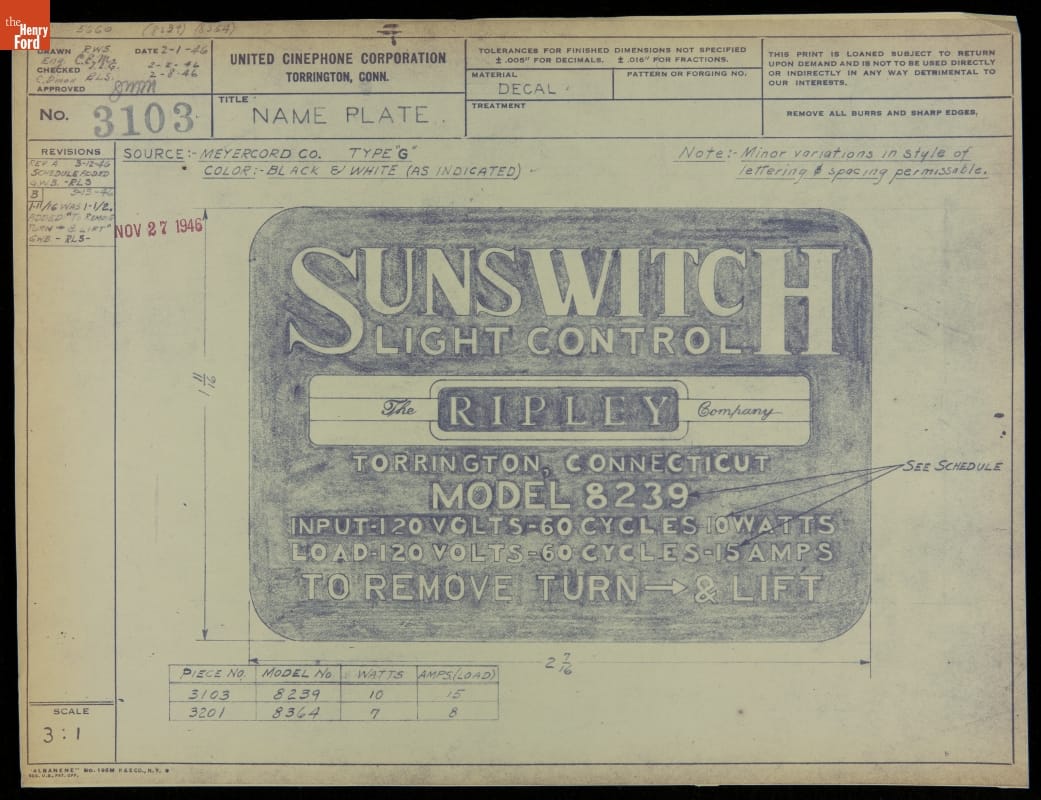 the
Henry
Ford
5660 (8239) (8364)
DRAWN RWS DATE 2-1-46
Eng. 2-5-46
CHECKED RLS. 2-8-46
APPROVED
No. 3103
UNITED CINEPHONE CORPORATION
TORRINGTON, CONN.
TITLE
NAME PLATE.
TOLERANCES FOR FINISHED DIMENSIONS NOT SPECIFIED
± .005" FOR DECIMALS. ± .016" FOR FRACTIONS.
MATERIAL
DECAL.
PATTERN OR FORGING NO.
TREATMENT
THIS PRINT IS LOANED SUBJECT TO RETURN
UPON DEMAND AND IS NOT TO BE USED DIRECTLY
OR INDIRECTLY IN ANY WAY DETRIMENTAL TO
OUR INTERESTS.
REMOVE ALL BURRS AND SHARP EDGES.
REVISIONS
REV. A 3-12-46
SCHEDULE ADDED
G.W.B. -RLS
B 3-13-46
1-11/16 WAS 1-1/2.
ADDED "TO REMOVE
TURN → & LIFT"
GWB - RLS-
SOURCE:- MEYERCORD CO. TYPE "G"
COLOR:- BLACK & WHITE (AS INDICATED)
Note:- Minor variations in style of
lettering & spacing permissable.
NOV 27 1946
SUNSWITCH
LIGHT CONTROL
The RIPLEY Company
TORRINGTON, CONNECTICUT
MODEL 8239
INPUT-120 VOLTS-60 CYCLES-10 WATTS
LOAD-120 VOLTS-60 CYCLES-15 AMPS
TO REMOVE TURN → & LIFT
SEE SCHEDULE
1 11/16
2 7/16
PIECE NO. MODEL NO WATTS AMPS.(LOAD)
3103 8239 10 15
3201 8364 7 8
SCALE
3:1
"ALBANENE" No. 195M K&E CO., N.Y. ®
REG. U.S. PAT. OFF.